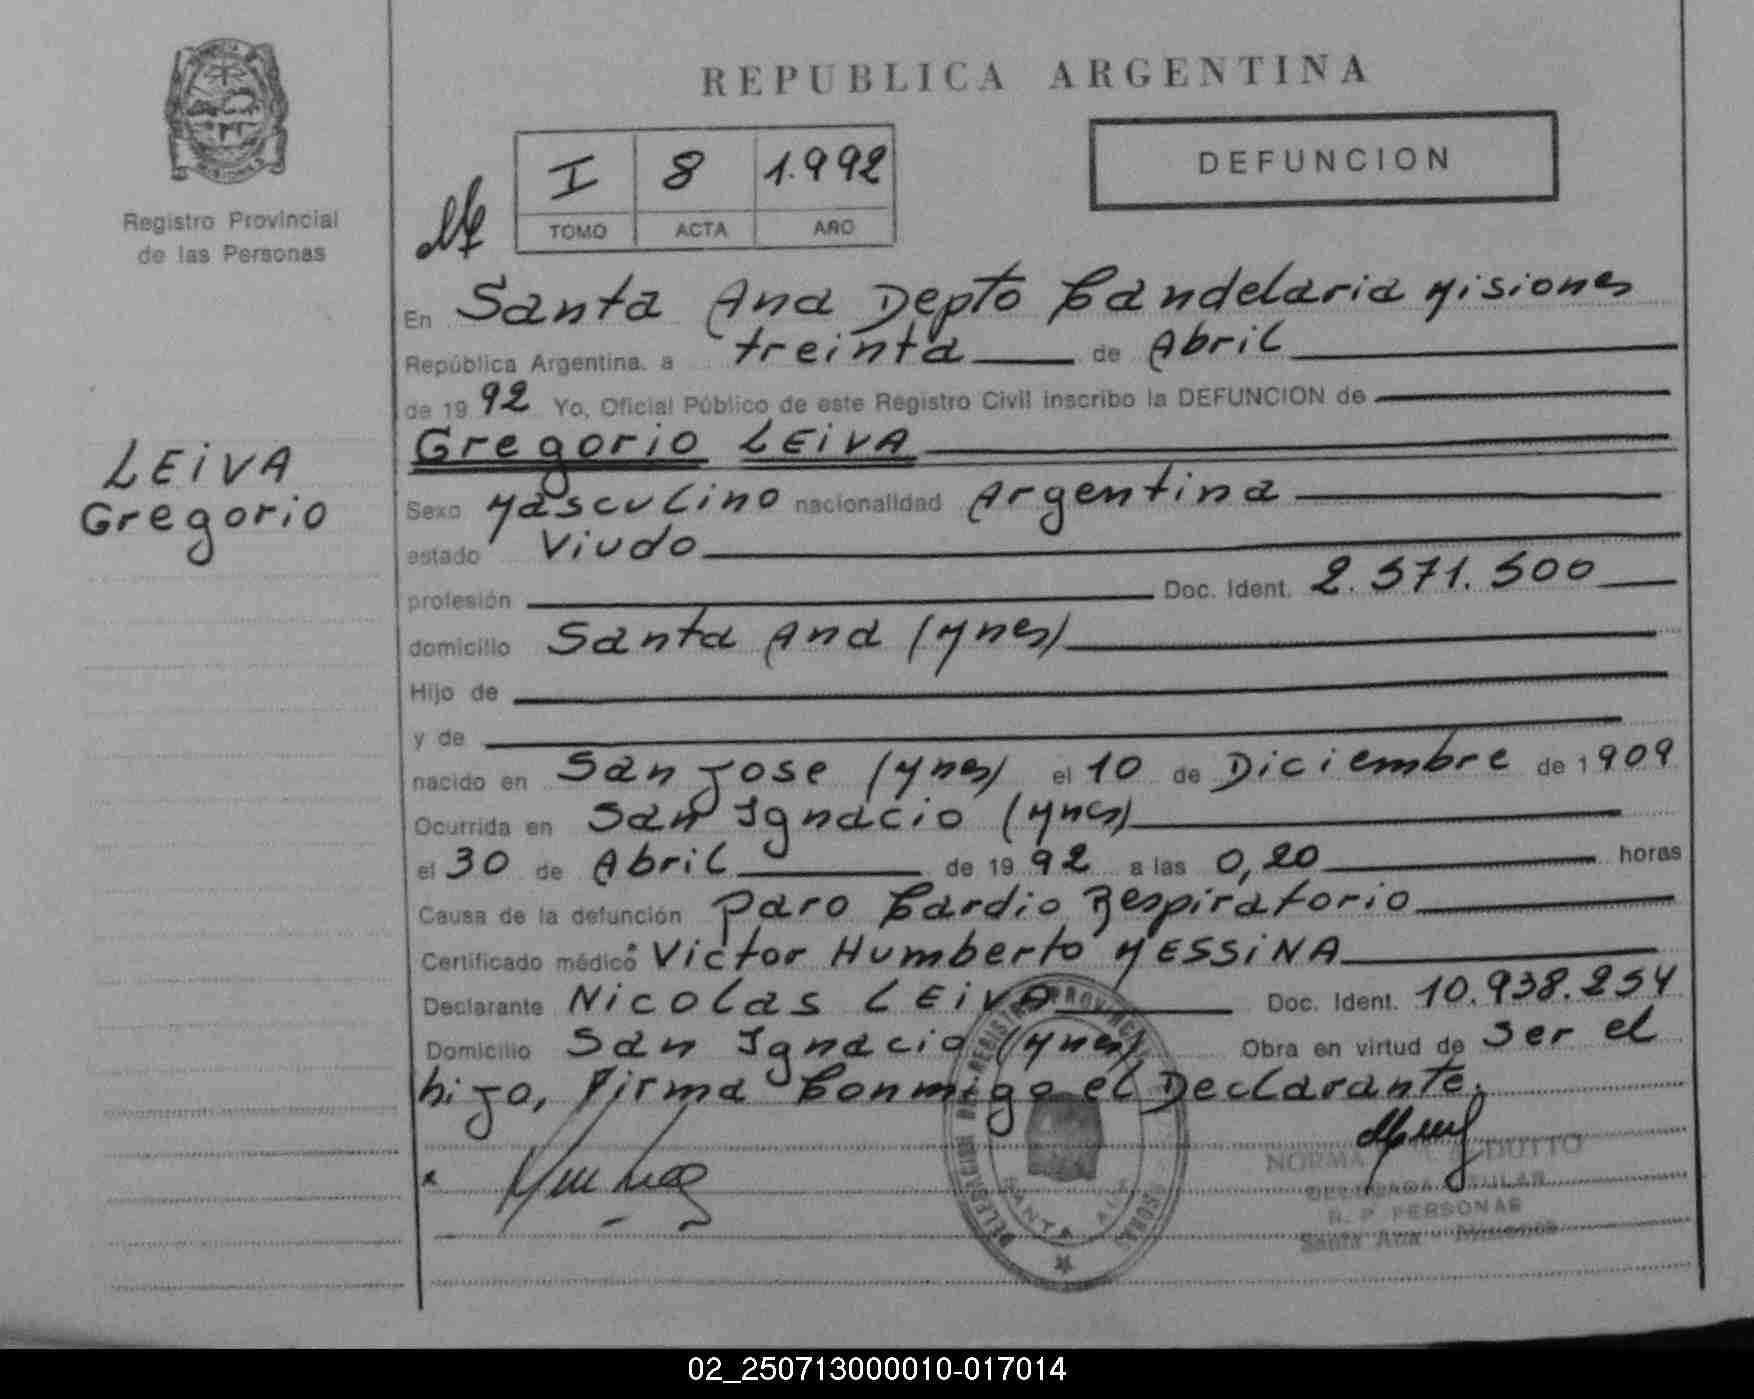 REPUBLICA ARGENTINA
Registro Provincial
de las Personas
I 8 1.992
TOMO ACTA AÑO
DEFUNCION
En Santa Ana Depto Candelaria Misiones
República Argentina, a treinta de Abril
de 1992 Yo, Oficial Público de este Registro Civil inscribo la DEFUNCION de
Gregorio LEIVA
LEIVA
Gregorio
Sexo Masculino nacionalidad Argentina
estado Viudo
profesión Doc. Ident. 2.571.500
domicilio Santa Ana (Mnes)
Hijo de
y de
nacido en San Jose (Mnes) el 10 de Diciembre de 1909
Ocurrida en San Ignacio (Mnes)
el 30 de Abril de 1992 a las 0,20 horas
Causa de la defunción paro Cardio Respiratorio
Certificado médico Victor Humberto MESSINA
Declarante Nicolas LEIVA Doc. Ident. 10.938.254
Domicilio San Ignacio (Mnes) Obra en virtud de ser el
hijo, Firma Conmigo el Declarante.
NORMA DUTTO
DELEGADA TITULAR
R. P. PERSONAS
Santa Ana - Misiones
SANTA ANA
02_250713000010-017014